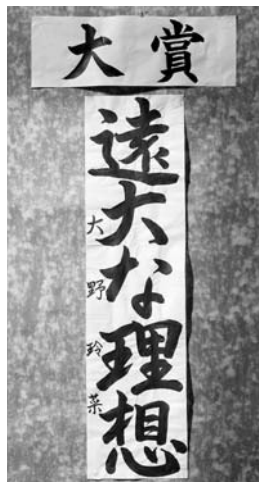 大賞
遠大な理想
大野玲菜